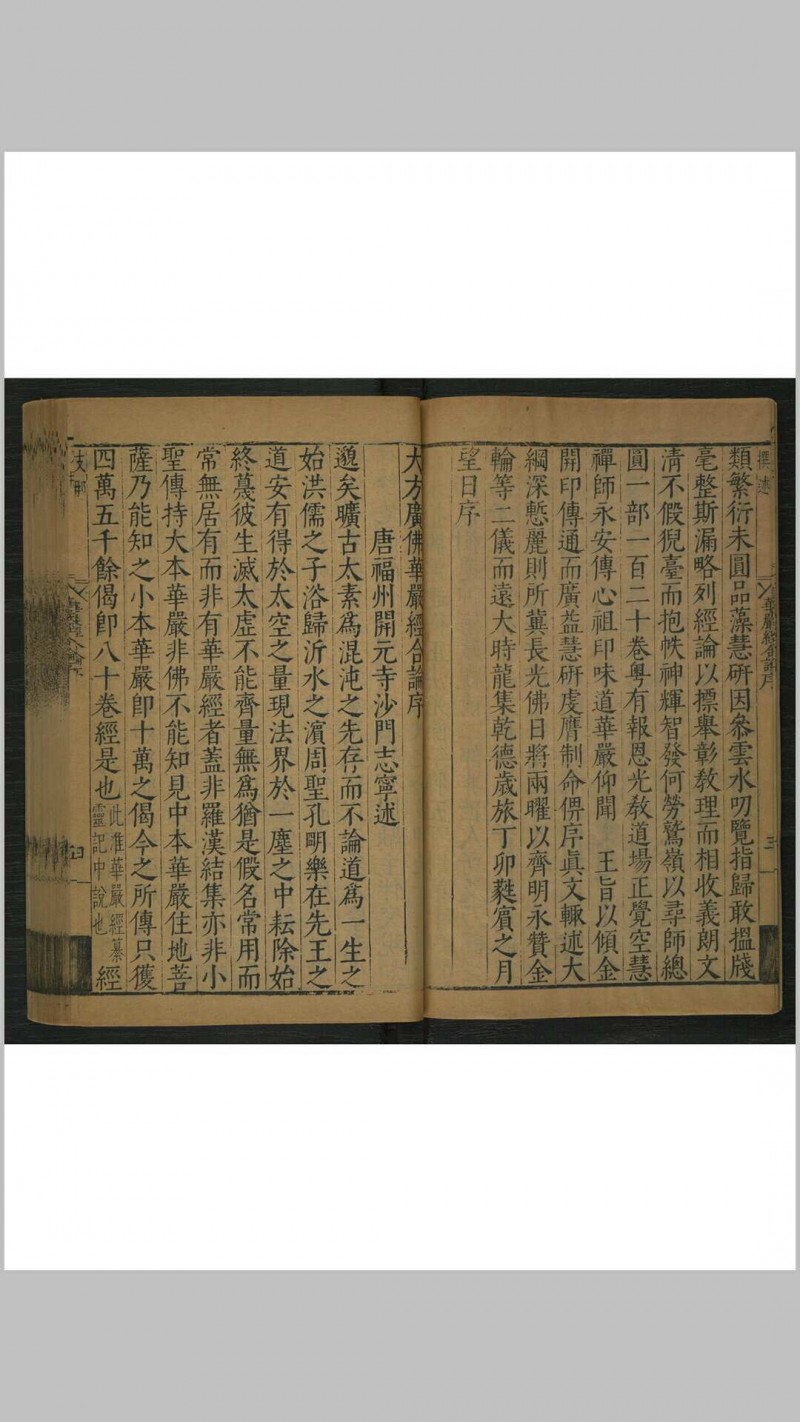 撰述
華嚴經合論序
三
類繁衍未圓品藻慧研因叅雲水叨覽指歸敢搵牋
毫整斯漏略列經論以摽舉彰教理而相收義朗文
清不假猊臺而抱帙神輝智發何勞鷲嶺以尋師總
圓一部一百二十卷粤有報恩光教道場正覺空慧
禪師永安傳心祖印味道華嚴仰聞　王旨以傾金
開印傳通而廣益慧研虔膺制命俾序眞文輙述大
綱深慙麗則所冀長光佛日將兩曜以齊明永贊金
輪等二儀而遠大時龍集乾德歲旅丁卯蕤賓之月
望日序
大方廣佛華嚴經合論序
唐福州開元寺沙門志寧述
邈矣曠古太素爲混沌之先存而不論道爲一生之
始洪儒之子浴歸沂水之濱周聖孔明樂在先王之
道安有得於太空之量現法界於一塵之中耘除始
終蔑彼生滅太虛不能齊量無爲猶是假名常用而
常無居有而非有華嚴經者蓋非羅漢結集亦非小
聖傳持大本華嚴非佛不能知見中本華嚴住地菩
薩乃能知之小本華嚴即十萬之偈今之所傳只獲
四萬五千餘偈即八十卷經是也此准華嚴經纂靈記中說也經
支那